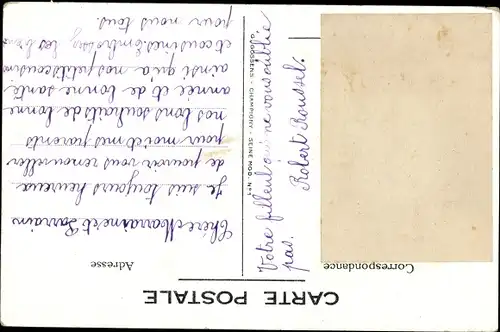 CARTE POSTALE
Correspondance
Adresse
Chère Marraine et Parrain
Je suis toujours heureux
de pouvoir vous renouveller
pour moi et mes parents
nos bons souhaits de bonne
année et de bonne santé
ainsi qu'a nos petits cousins
et cousines. Embrassez les bien
pour nous tous.
Votre filleul qui ne vous oublie
pas.
Robert Roussel.
GOOSSENS - CHAMPIGNY - SEINE MOD. N° 1